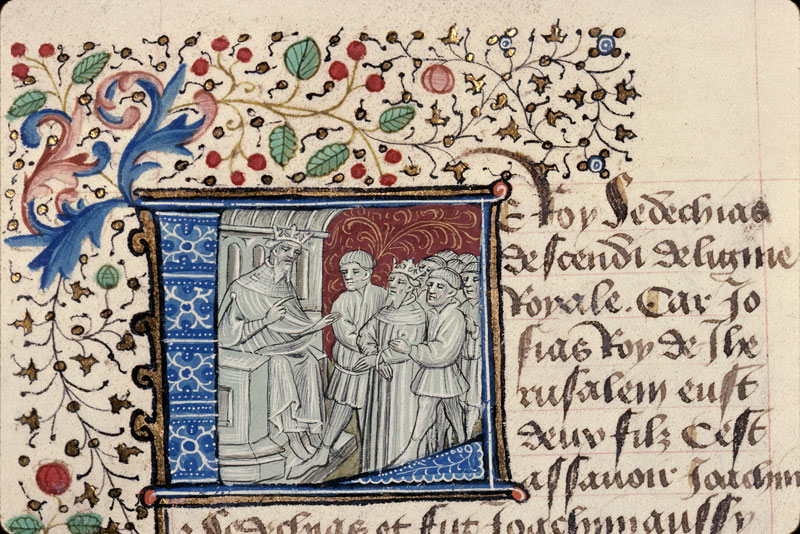 Le roy Sedechias
descendi de lignie
Royale. Car Jo
sias Roy de Jhe
rusalem eust
deux filz Cest
assauoir Joachim
Sedechias et fut Joachim aussy